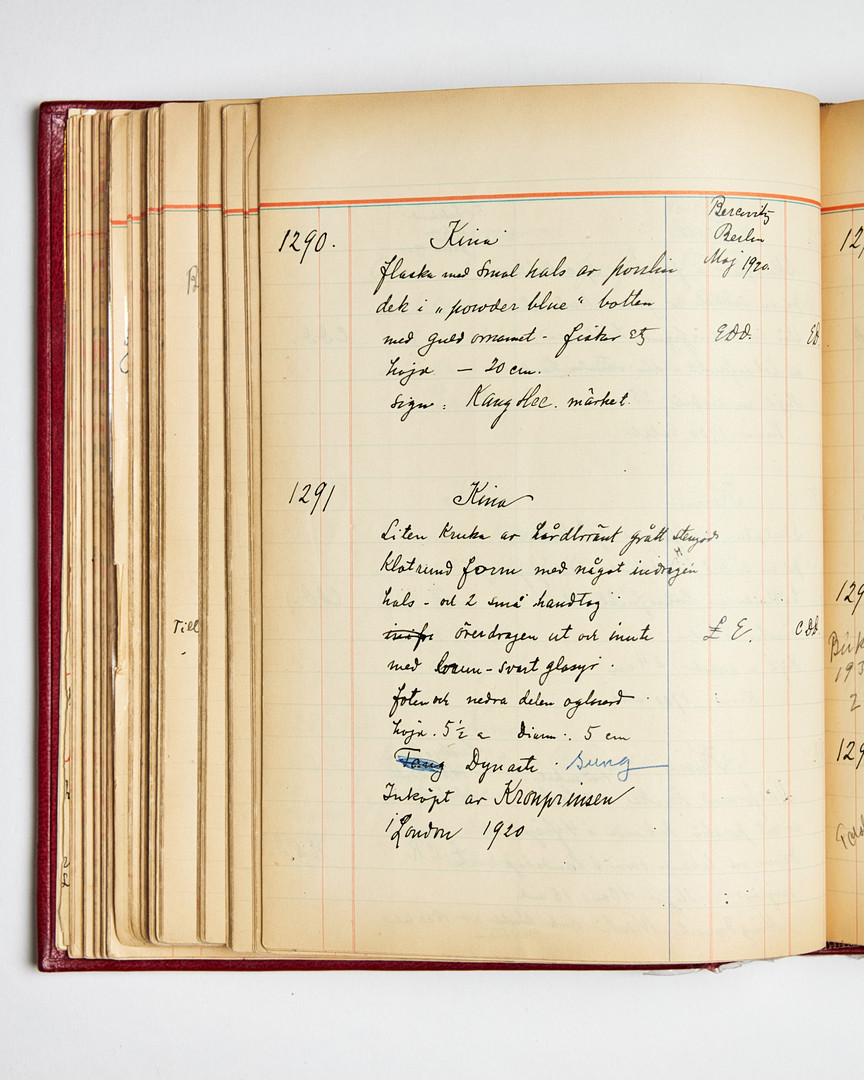 Bercovitz
Berlin
Maj 1920.
1290. Kina
flaska med smal hals av porslin
dek i „ powder blue “ botten
med guld ornamet - fiskar etz
EDD.
höjd — 20 cm.
Sign : Kang Hee. märket.
1291 Kina
Liten Kruka av hårdbränt grått stengods
Klotrund form med något indragen
hals - och 2 små handtag
överdragen ut och inute
£ E.
CDD.
med brun-svart glasyr.
foten och nedra delen oglaserd
höjd. 5 ½ a Diam :. 5 cm
Tang Dynasti. Sung
Inköpt av Kronprinsen
i London 1920
Till